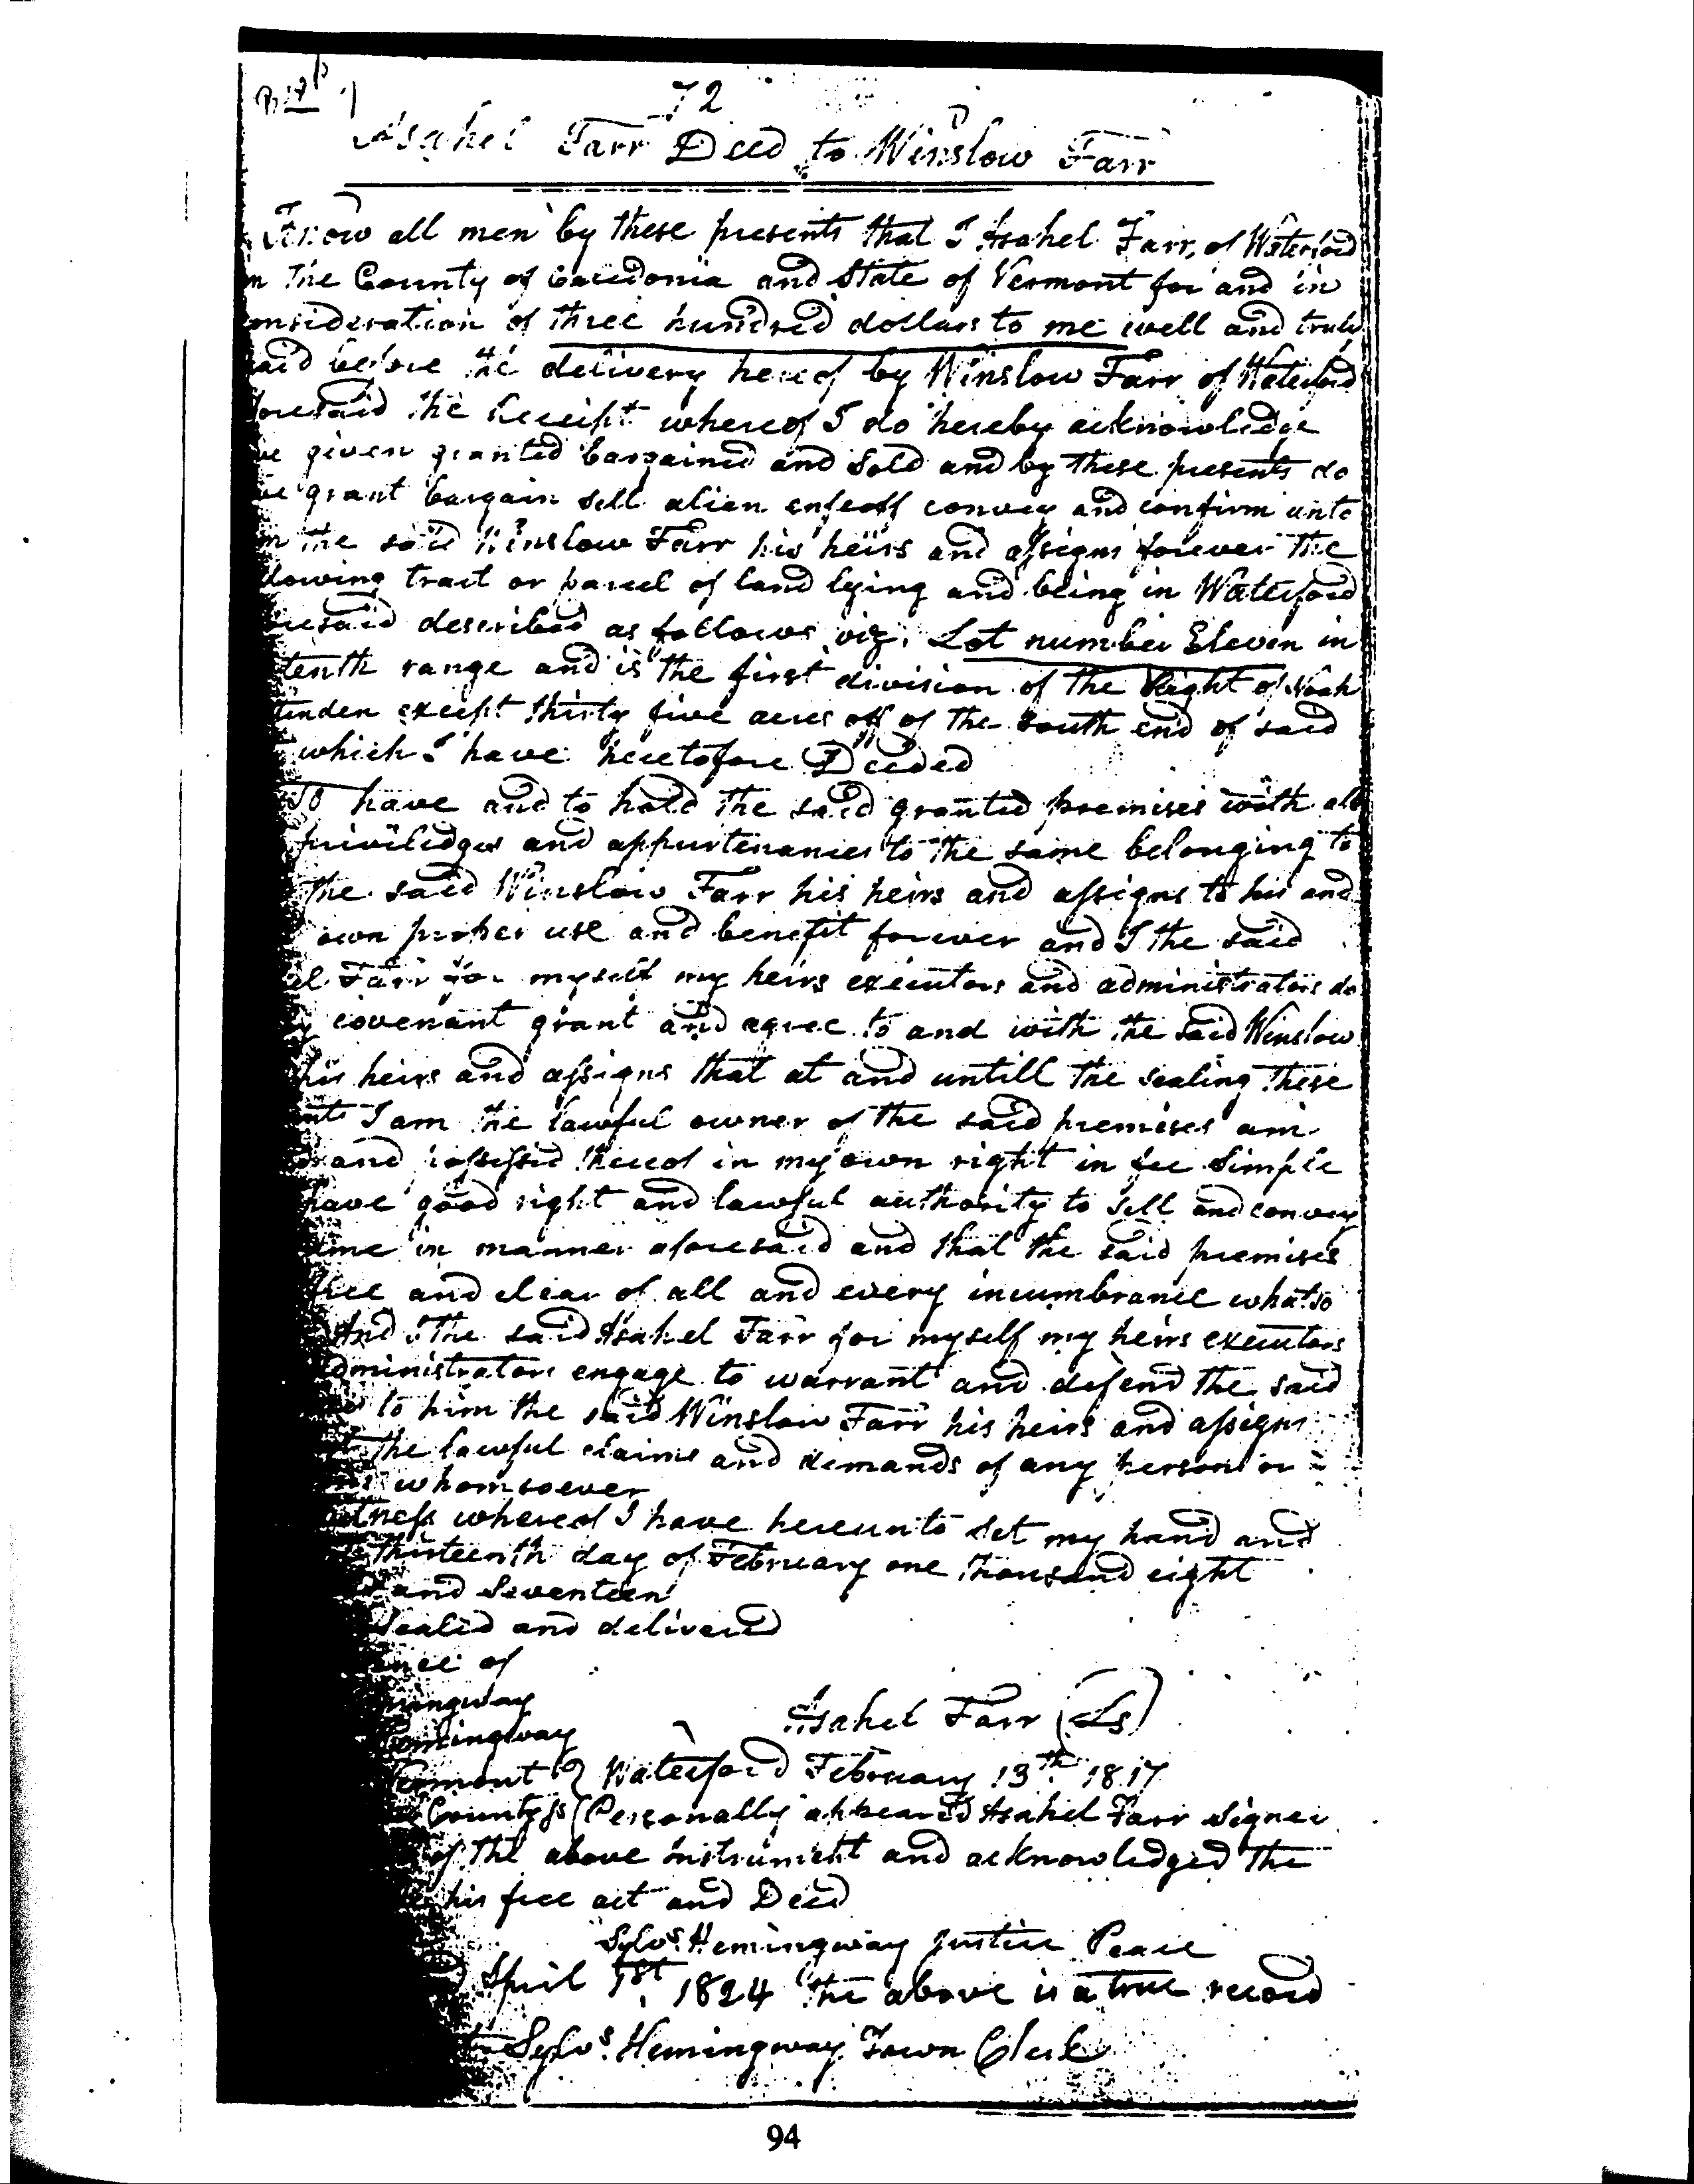 72
Asahel Farr Deed to Winslow Farr
Know all men by these presents that I Asahel Farr, of Waterford
in the County of Caledonia and State of Vermont for and in
onsideration of three hundred dollars to me well and truly
aid before the delivery hereof by Winslow Farr of Waterford
foresaid the Receipt whereof I do hereby acknowledge
ve given granted bargained and Sold and by these presents do
ve grant bargain sell alien enfeoff convey and confirm unto
m the said Winslow Farr his heirs and assigns forever the
llowing tract or parcel of land lying and being in Waterford
oresaid described as follows viz. Lot number Eleven in
tenth range and is the first division of the Right of Noah
tenden except thirty five acres off of the South end of said
which I have heretofore Deeded
To have and to hold the said granted premises with all
priviledges and appurtenances to the same belonging to
the said Winslow Farr his heirs and assigns to his and
own proper use and benefit forever and I the said
el Farr for myself my heirs executors and administrators do
y covenant grant and agree to and with the said Winslow
his heirs and assigns that at and untill the sealing these
nts I am the lawful owner of the said premises am
and possessed thereof in my own right in fee Simple
have good right and lawful authority to sell and convey
ame in manner aforesaid and that the said premises
free and clear of all and every incumbrance whatso
And I the said Asahel Farr for myself my heirs executors
dministrators engage to warrant and defend the said
to him the said Winslow Farr his heirs and assigns
the lawful claims and demands of any person or
ns whomsoever
itness whereof I have hereunto set my hand and
thirteenth day of February one thousand eight
and Seventeen
Sealed and delivered
ence of
mingway
Hemingway
Asahel Farr (Ls)
Vermont } Waterford February 13th 1817
County ss { Personally appeared Asahel Farr Signer
of the above instrument and acknowledged the
his free act and Deed
Sylvs. Hemingway Justice Peace
April 1st 1824 the above is a true record
Sylvs. Hemingway Town Clerk
94